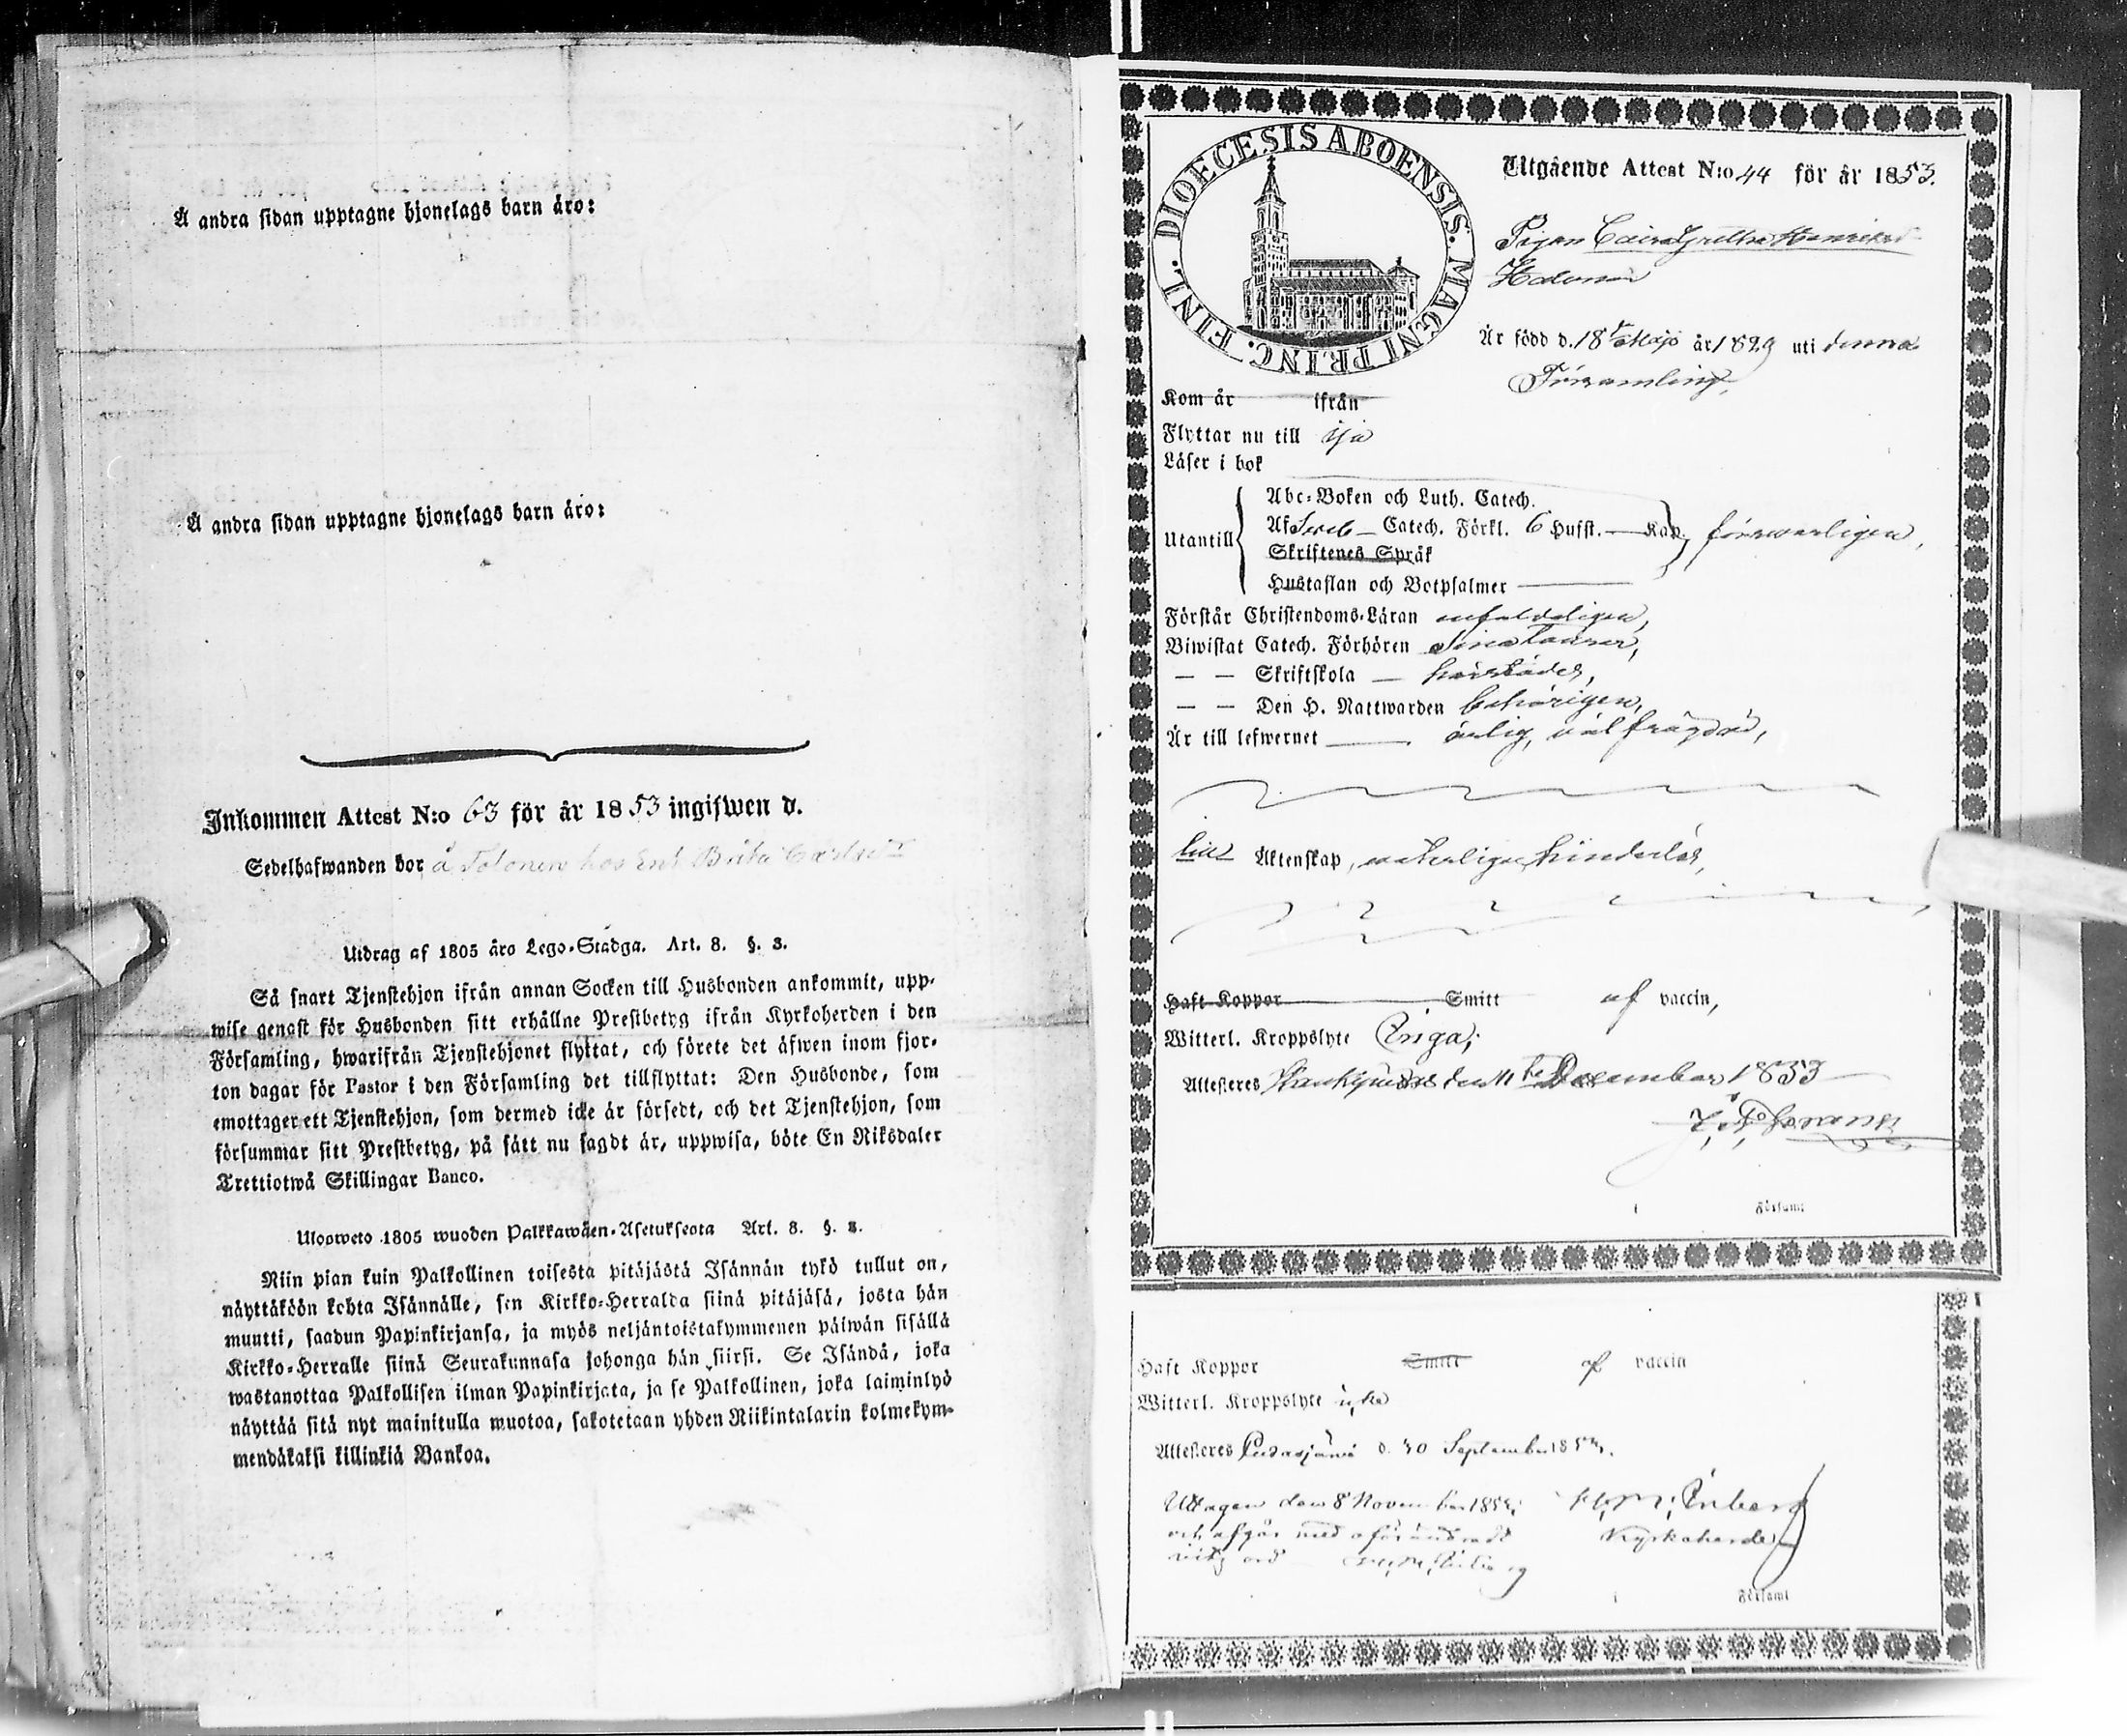 Å andra sidan upptagne hjonelags barn äro:
Å andra sidan upptagne hjonelags barn äro:
Inkommen Attest N:o 63 för år 1853 ingifwen d.
Sedelhafwanden bor å Tolonen hos Enk Brita Carlsdtr
Utdrag af 1805 års Lego-Stadga. Art. 8. §. 3.
Så snart Tjenstehjon ifrån annan Socken till Husbonden ankommit, upp-
wise genast för Husbonden sitt erhållne Prestbetyg ifrån Kyrkoherden i den
Församling, hwarifrån Tjenstehjonet flyttat, och förete det äfwen inom fjor-
ton dagar för Pastor i den Församling det tillflyttat: Den Husbonde, som
emottager ett Tjenstehjon, som dermed icke är försedt, och det Tjenstehjon, som
försummar sitt Prestbetyg, på sätt nu sagdt är, uppwisa, böte En Riksdaler
Trettiotwå Skillingar Banco.
Ulosweto 1805 wuoden Palkkawäen-Asetuksesta Art. 8. §. 3.
Niin pian kuin Palkollinen toisesta pitäjästä Isännän tykö tullut on,
näyttäköön kohta Isännälle, sen Kirkko-Herralda siinä pitäjäsä, josta hän
muutti, saadun Papinkirjansa, ja myös neljäntoistakymmenen päiwän sisällä
Kirkko-Herralle siinä Seurakunnasa johonga hän siirsi. Se Isändä, joka
wastanottaa Palkollisen ilman Papinkirjata, ja se Palkollinen, joka laiminlyö
näyttää sitä nyt mainitulla wuotoa, sakotetaan yhden Riikintalarin kolmekym-
mendäkaksi killinkiä Bankoa.
DIOECESIS ABOENSIS. MAGNI PRINC. FINL.
Utgående Attest N:o 44 för år 1853.
Pigan Caisa Gretha Henriksd
Är född d. 18 Maji år 1829 uti denna
Församling,
Kom år ifrån
Flyttar nu till Ijo
Läser i bok
Utantill
Abc-Boken och Luth. Catech.
Af Sveb Catech. Förkl. 6 Hufst. Kap. försvarligen,
Skriftenes Språk
Hustaflan och Botpsalmer
Förstår Christendoms-Läran enfaldeligen,
Biwistat Catech. Förhören
— — Skriftskola —
— — Den H. Nattwarden behörigen,
Är till lefwernet ärlig, välfrägdad,
till Äktenskap, hinderlös,
Haft Koppor Smitt af vaccin,
Witterl. Kroppslyte Inga;
Attesteres den 11te December 1853
i Församl
Haft Koppor Smitt af vaccin
Witterl. Kroppslyte icke
Attesteres Pudasjärvi d. 30 September 1853.
Uttagen den 8 November 1853;
och afgår med oförändradt
vitsord
Kyrkoherde
i Församl